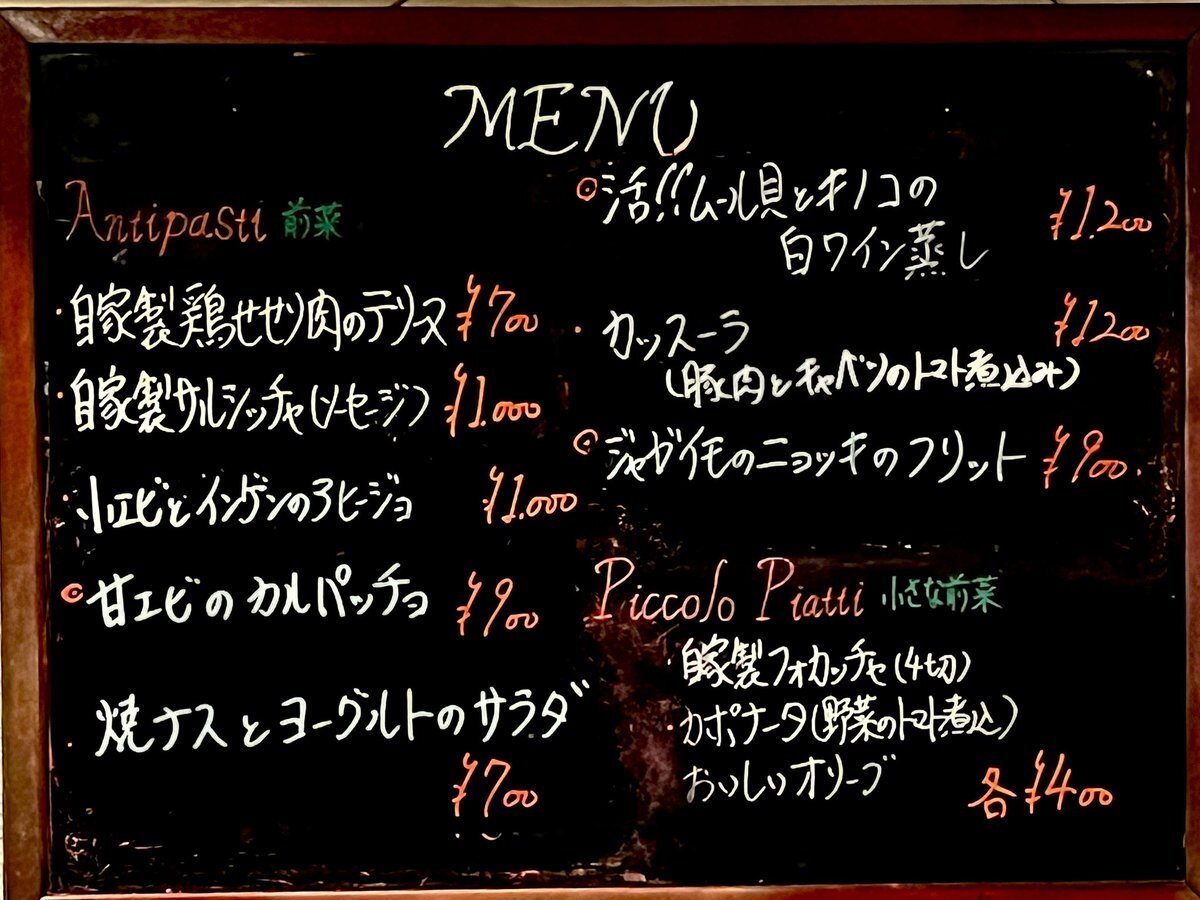 MENU
Antipasti 前菜
・自家製鶏せせり肉のテリーヌ ¥700
・自家製サルシッチャ(ソーセージ) ¥1.000
・小エビとインゲンのアヒージョ ¥1.000
◎甘エビのカルパッチョ ¥900
・焼ナスとヨーグルトのサラダ
¥700
◎活!!ムール貝とキノコの
白ワイン蒸し ¥1.200
・カッスーラ ¥1200
(豚肉とキャベツのトマト煮込み)
◎ジャガイモのニョッキのフリット ¥900
Piccolo Piatti 小さな前菜
・自家製フォカッチャ(4切)
・カポナータ(野菜のトマト煮込)
おいしいオリーブ 各¥400